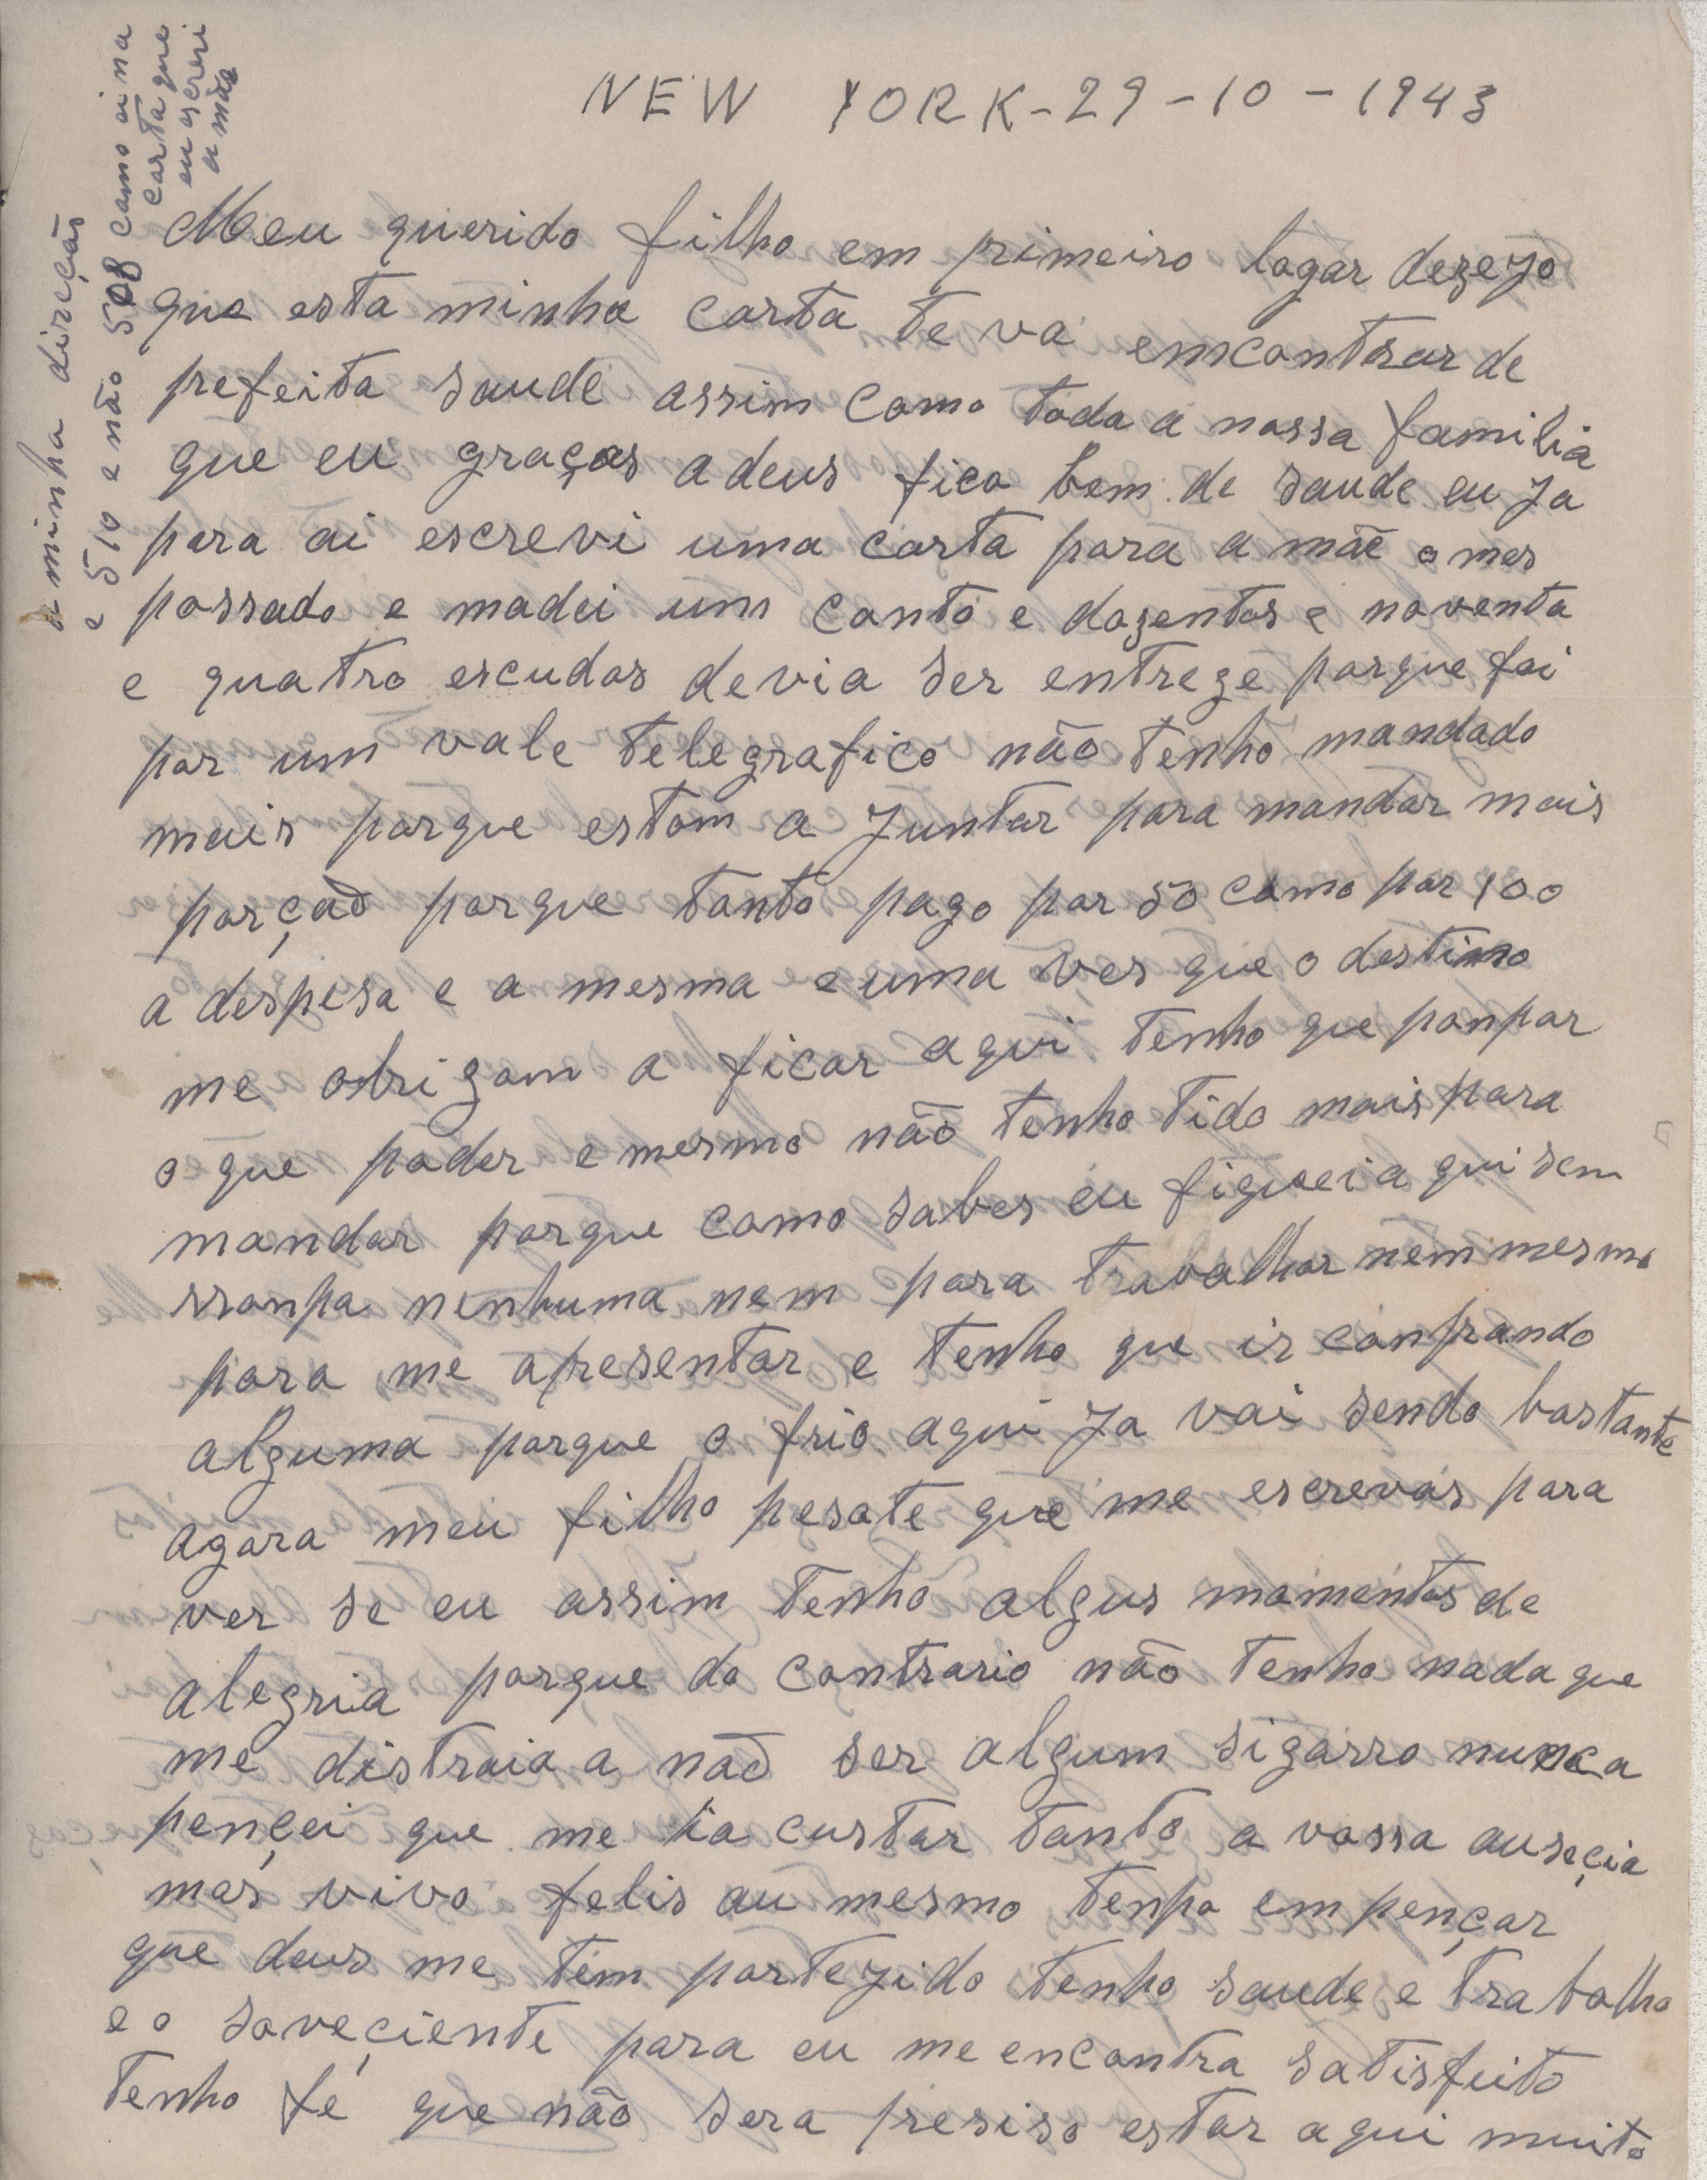 NEW YORK-29-10-1943
Meu querido filho em primeiro logar dezejo
que esta minha carta te va emcontrar de
prefeita saude assim como toda a nossa familia
que eu graças a deus fico bem de saude eu ja
para ai escrevi uma carta para a mãe o mes
possado e madei um conto e dozentos e noventa
e quatro escudos devia ser entrege porque foi
por um vale telegrafico não tenho mandado
mais porque estom a juntar para mandar mais
porção porque tanto pago por 50 como por 100
a despesa e a mesma e uma ves que o destino
me obrigom a ficar aqui tenho que ponpar
o que poder e mesmo não tenho tido mais para
mandar porque como sabes eu figuei aqui sem
rronpa nenhuma nem para trabalhar nem mesmo
para me apresentar e tenho que ir conprando
alguma porque o frio aqui ja vai sendo bastante
agora meu filho pesote que me escrevas para
ver se eu assim tenho algus momentos de
alegria porque do contrario não tenho nada que
me distraia a não ser algum sigarro nunca
pençei que me ia custar tanto a vossa auseçia
mas vivo felis au mesmo tenpo em pençar
que deus me tem portejido tenho saude e trabalho
e o soveçiente para eu me encontra satisfeito
tenho fé que não sera presiso estar aqui muito
a minha direcção
e 510 e não 508 como ai na
carta que
eu escrevi
a mãe